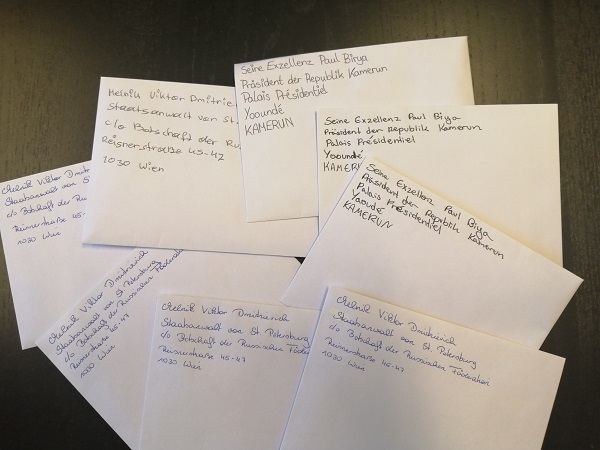 Seine Exzellenz Paul Birya
Präsident der Republik Kamerun
Palais Présidentiel
Yooundé
KAMERUN
Melnik Viktor Dmitrie
Staatsanwalt von St.
c/o Botschaft der Ru
Reisnerstraße 45-47
1030 Wien
Seine Exzellenz Paul Birya
Präsident der Republik Kamerun
Palais Présidentiel
Yooundé
KAMER
Seine Exzellenz Paul Birya
Präsident der Republik Kamerun
Palais Présidentiel
Yaoundé
KAMERUN
Melnik Viktor Dmitrievich
Staatsanwalt von St. P
c/o Botschaft der Russ
Reisnerstraße 45-
1030 Wien
Melnik Viktor Dmitrievich
Staatsanwalt von St. Petersburg
c/o Botschaft der Russischen Föderation
Reisnerstraße 45-47
1030 Wien
Melnik Viktor Dmitrievich
Staatsanwalt von St. Petersburg
c/o Botschaft der Russischen Föder
Reisnerstraße 45-47
1030 Wien
Melnik Viktor Dmitrievich
Staatsanwalt von St. Petersburg
c/o Botschaft der Russischen Föderation
Reisnerstraße 45-47
1030 Wien